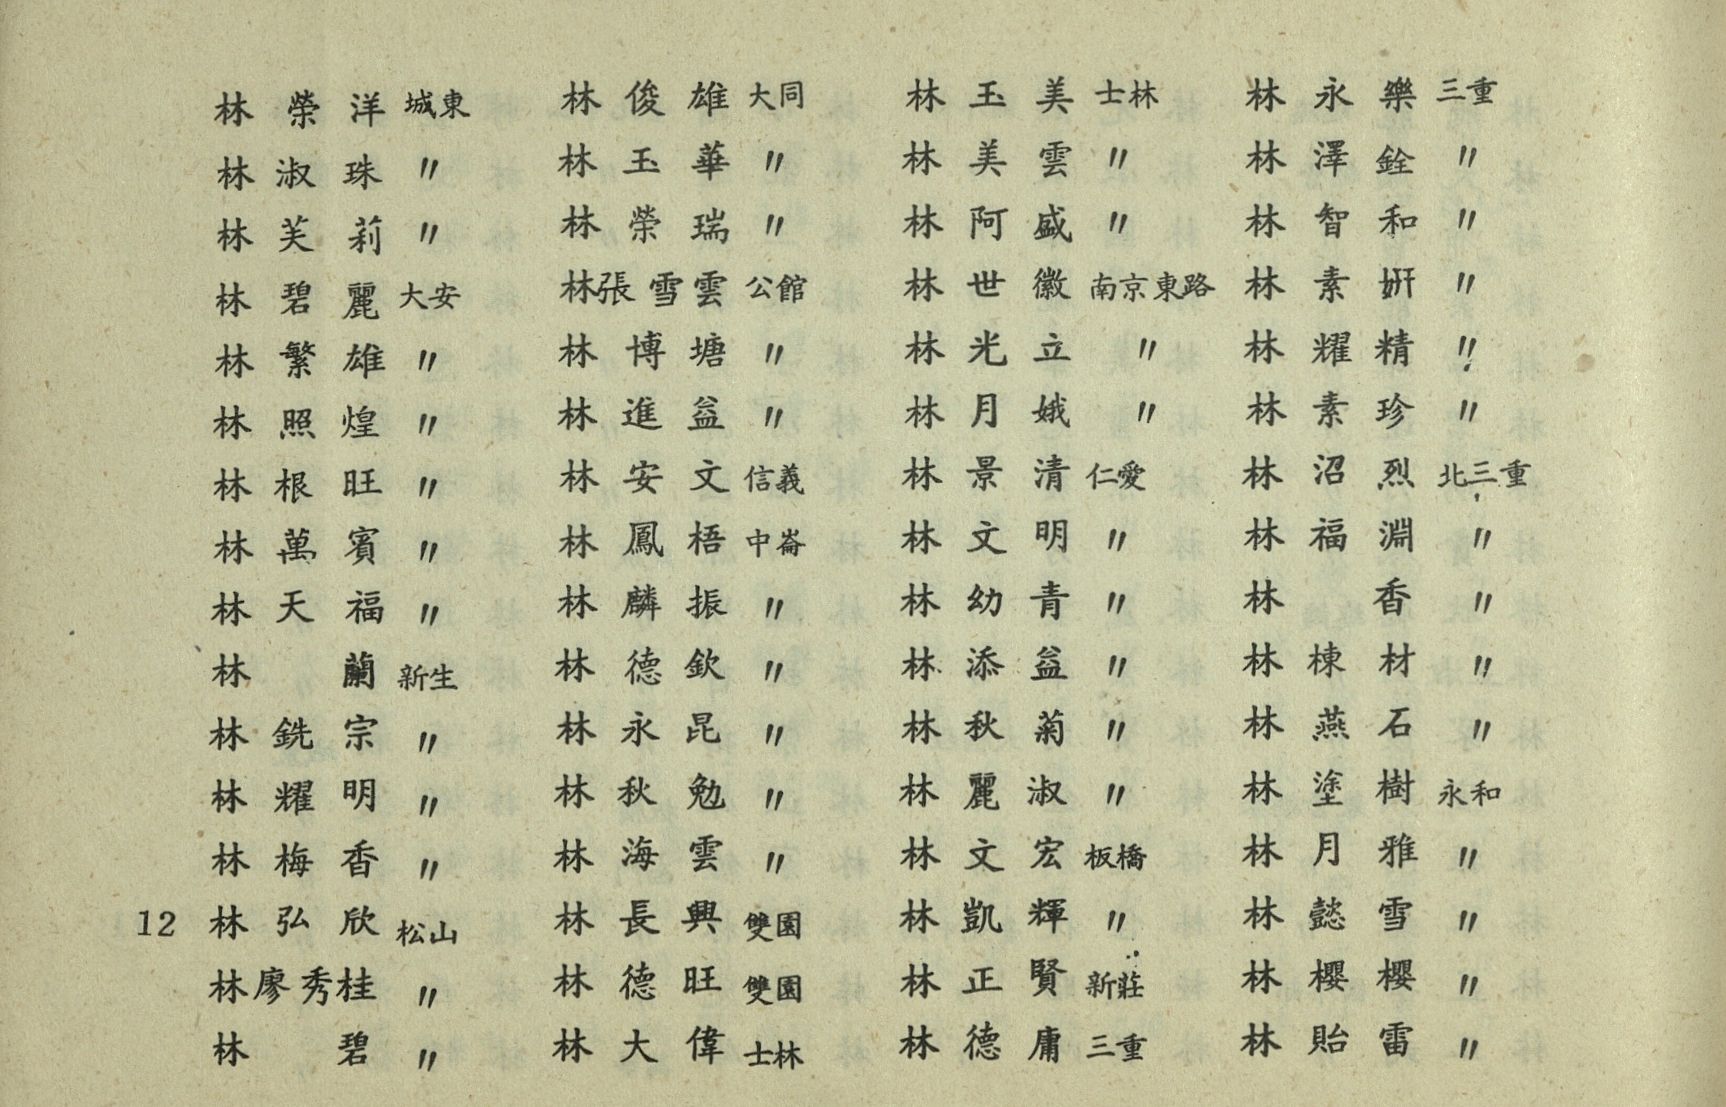 林榮洋 城東
林淑珠 〃
林芙莉 〃
林碧麗 大安
林繁雄 〃
林照煌 〃
林根旺 〃
林萬賓 〃
林天福 〃
林 蘭 新生
林銑宗 〃
林耀明 〃
林梅香 〃
林弘欣 松山
林廖秀桂 〃
林 碧 〃
林俊雄 大同
林玉華 〃
林榮瑞 〃
林張雪雲 公館
林博塘 〃
林進益 〃
林安文 信義
林鳳梧 中崙
林麟振 〃
林德欽 〃
林永昆 〃
林秋勉 〃
林海雲 〃
林長興 雙園
林德旺 雙園
林大偉 士林
林玉美 士林
林美雲 〃
林阿盛 〃
林世徽 南京東路
林光立 〃
林月娥 〃
林景清 仁愛
林文明 〃
林幼青 〃
林添益 〃
林秋菊 〃
林麗淑 〃
林文宏 板橋
林凱輝 〃
林正賢 新莊
林德庸 三重
林永樂 三重
林澤銓 〃
林智和 〃
林素姸 〃
林耀精 〃
林素珍 〃
林沼烈 北三重
林福淵 〃
林 香 〃
林棟材 〃
林燕石 〃
林塗樹 永和
林月雅 〃
林懿雪 〃
林櫻櫻 〃
林貽雷 〃
12